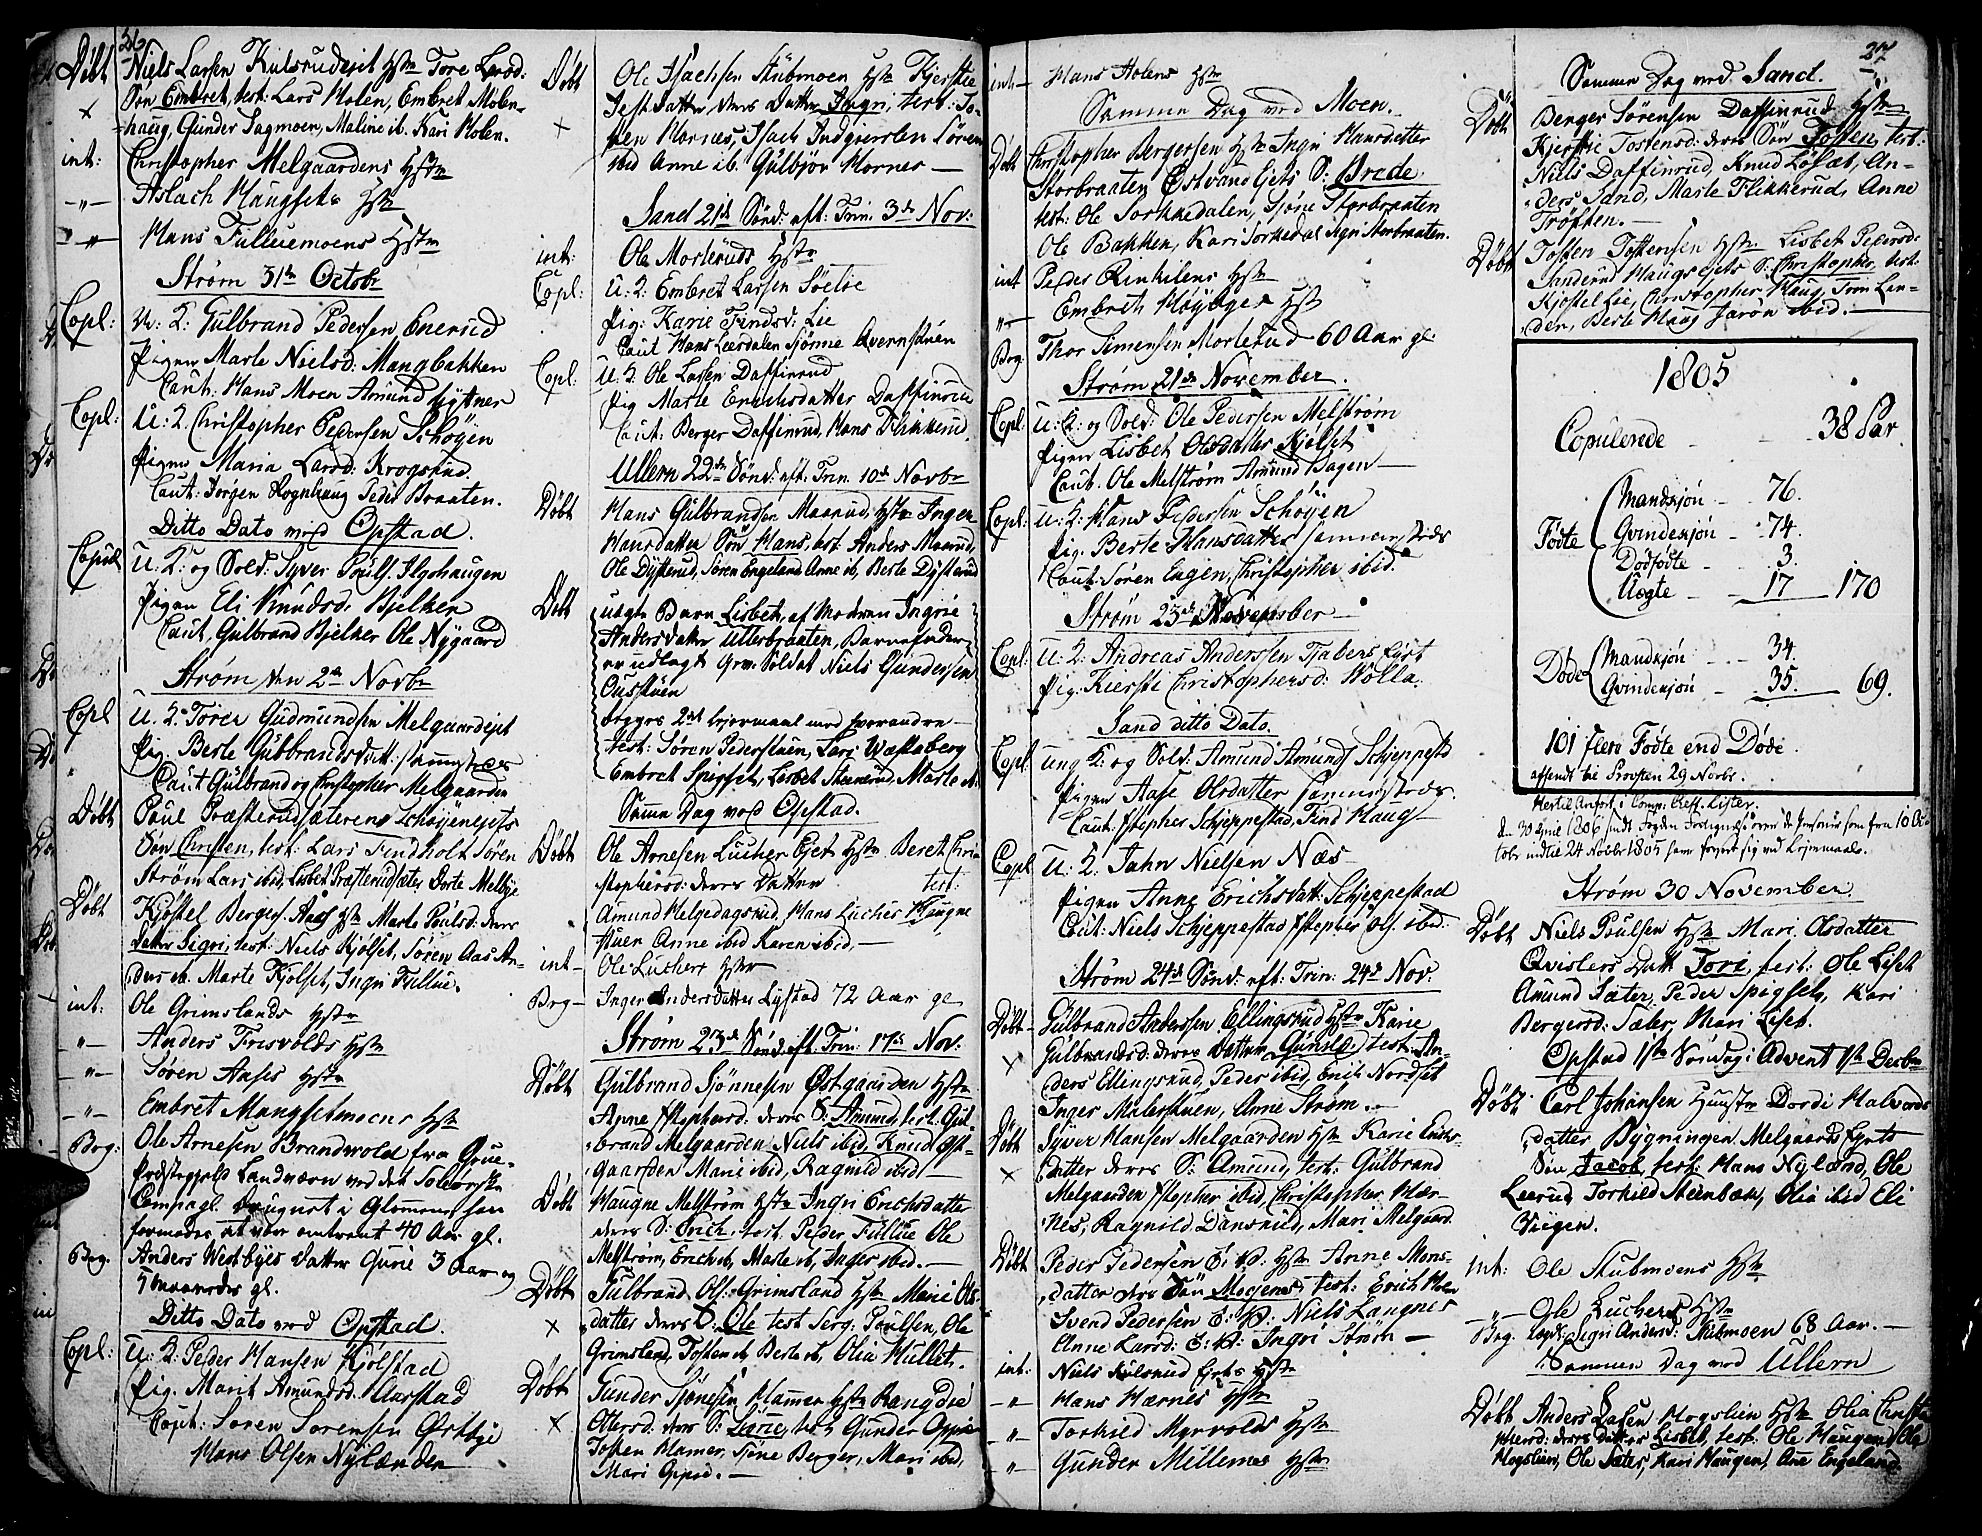 26
Döbt Niels Larsen Kulsrudejet Hstr Tore Larsd:
× Søn Embret, test: Lars Holen, Embret Molen-
haug, Gunder Sagmoen, Maline ib. Kari Holen.
int: Christopher Melgaardens Hstr
-"- Aslach Haugsets Hstr
-"- Hans Fulluemoens Hstr
Strøm 31te Octobr
Copl: U: 2: Gulbrand Pedersen Enerud
Pigen Marte Nielsd: Mangbakken
Caut: Hans Moen Amund
Copl: U: 2. Christopher Pedersen Schøyen
Pigen Maria Larsd: Krogstad
Caut: Jørgen Rognhaug Peder Braaten.
Ditto Dato ved Opstad.
Copul U: 2: og Sold: Syver Pouls.
Pigen Eli Knudsd: Bjelker
Caut, Gulbrand Bjelker Ole Nygaard
Strøm den 2de Novbr
Copl U: 2: Torer Gudmundsen Melgaardejet
Pig. Berte Gulbrandsdatt:
Caut Gulbrand og Christopher Melgaarden
Döbt Poul Præsterudsæterens Schøyenejets
Søn Christen, test: Lars Findholt Søren
Strøm Lars ibid, Lisbet Præsterudsæter Dorte Melbye
Döbt Kjøstel Bergers. Aas Hstr Marte Poulsd: deres
Datter Sigri, test: Niels Kjolset, Søren Aas An-
ders ib. Marte Kjolset, Ingri Fullue.
int: Ole Grimslands Hstr
-"- Anders Frisvolds Hstr
-"- Søren Aases Hstr
-"- Embret Mangsetmoens Hstr
Beg: Ole Arnesen Brandvold fra Grue-
Præstegjeld Landværn ved det Solørske
Compagi. i Glommen, han
formodes at være omtrent 40 Aar gl.
Beg. Anders Westbyes Datter Gurie 3 Aar og
5 maaneder gl.
Ditto Dato ved Opstad.
Copl: U: 2: Peder Hansen Kjolstad
Pig. Marit Amundsd. Aarstad
Caut: Søren Sørensen Østbye
Hans Olsen Nylænder
Döbt Ole Isachsen Stubmoen Hstr Kjerstie
× deres Datter Ingri, test: To-
sten Hornes, Isach Søren
ibid Anne ib. Gulbjør Hornes —
Sand 21de Sønd: eft: Trin. 3de Nov:
int: Ole Morteruds Hstr
Copl: U: 2: Embret Larsen Søetøe
Pig: Karie Findsd: Lie
Caut Hans Leerdalen Sjønne
Copl: U: 2: Ole Larsen Daffinrud
Pig Marte Erichsdatter Daffinrud
Caut: Berger Daffinrud, Hans Flikkerud.
Ullern 22de Sønd: eft. Trin. 10de Novbr
Döbt Hans Gulbrandsen Maarud, Hstr Inger
Hansdatter Søn Hans, test Anders Maarud,
Ole Dysterud, Søren Engeland Anne ib, Berte Dysterud
Döbt uægte Barn Lisbeth, af Moderen Ingrie
Andersdatter Ullerbraaten, Barnefader
er udlagt Grv. Soldat Niels Gundersen
Ousstuen
begges 2det leiermaal med hverandre —
test: Søren Pederstuen, Lars Wæstaberg
Embret Spigset, Lisbet Marte ib.
Samme Dag ved Opstad.
Döbt Ole Arnesen Lucher Ejet Hstr Beret Chri-
stophersd: deres Datter test:
Amund Helgedagsrud, Hans Lucher Haugne
stuen Anne ibid Karen ibid. —
int - Ole Luchers Hstr
Beg - Inger Andersdatter Lystad 72 Aar gl
Strøm 23de Sønd. eft. Trin: 17de Nov:
Döbt Gulbrand Sjønnesen Østgaarden Hstr
Anne Stephersd: deres S: Amund, test: Gul-
brand Melgaarden, Niels ibid, Knud Øst-
gaarden Marie ibid, Ragnild ibid —
Döbt Haugne Melstrøm Hstr Ingri Erichsdatter
deres S: Erich, test. Peder Fullue Ole
Melstrøm, Erich ib, Marte ib, Inger ibid. —
Döbt Gulbrand Ols: Grimsland Hstr Marie Ols-
× datter deres S. Ole test Serg: Poulsen, Ole
Grimsland, Tosten ib Berte ib, Olia Hullet.
Döbt Gunder Sjønesen Hammer Hstr Rangdie
× Ottersd: deres S: test Gunder
Tosten Hamer, Sjøne Berger, Mari ibid,
Mari —
int - Hans Holens Hstr
Samme Dag ved Moen.
Döbt Christopher Bergersen Hstr Ingri Hansdatter
Storbraaten Østvandejets S: Brede.
test: Ole Torkedalen, Sjøne Storbraaten
Ole Bakken, Kari Torkedal Agn: Storbraaten.
int Peder Rinhilens Hstr
"- Embret Høybyes Hstr
Beg. Thor Simensen Morterud 60 Aar gl.
Strøm 21de November.
Copl: U: 2: og Sold: Ole Pedersen Melstrøm
Pigen Lisbet Olsdatter Kjolset
Caut. Ole Melstrøm Amund Bagen —
Copl: U: 2: Hans Pedersen Schøyen
Pig. Berte Hansdatter sammesteds
Caut: Søren Engen, Christopher ibid.
Strøm 23de November —
Copl: U: 2: Andreas Anderssen
Pig: Kiersti Christophersd: Holla.
Sand ditto Dato.
Copl: ung K: og Sold: Amund Amunds Schjeppestad
Pigen Aase Olsdatter sammesteds.
Caut: Stepher Schjeppestad, Find Haug —
Copl U: 2: Jahn Nielsen Næs —
Pigen Anne Erichsdatt: Schjeppestad
Caut: Niels Schjeppestad Stepher Ols. ibid:
Strøm 24de Sønd: eft: Trin: 24de Nov:
Döbt - Gulbrand Anderssen Ellingsrud Hstr Karie
× Gulbrandsd: deres Datter Gunild, test: An-
ders Ellingsrud, Peder ibid, Erik Nordset
Inger Malerstuen, Anne Strøm. —
Döbt Syver Hansen Melgaarden Hstr Karie Erichs-
× datter deres S: Amund, test: Gulbrand
Melgaarden Stepher ibid, Christopher Hær-
nes, Ragnild Dansrud, Mari Melgaard.
Döbt Peder Pedersen E: W: Hstr Anne Mons-
datter deres Søn Mogens, test: Erich Holm
Svend Pedersen E: W: Niels Langnes
Anne Larsd: E: W: Ingri Strøm —
int: Niels Kulsrud Ejets Hstr
-"- Hans Hærnes Hstr
-"- Torkild Myrvolds Hstr
-"- Gunder Millemes Hstr
27
Samme Dag ved Sand.
Döbt Berger Sørensen Daffinrud Hstr
Kjerstie Tostensd: deres Søn Tosten, test:
Niels Daffinrud, Knud Løsæt, An-
ders Sand, Marte Flikkerud, Anne
Trøften. —
Döbt Tosten Tostensen Hstr Lisbet Pedersd:
Sanderud Haugsejets S: Christopher, test.
Kjøstel Lie, Christopher Haug, Tron Len-
der, Berte Haug Jarøn ibid. —
1805
Copulerede - - 38 Par.
Fødte Mandkjøn - 76.
Qvindekjøn - 74.
Dødfødte - 3.
Uægte - 17 — 170
Døde Mandkjøn - - 34.
Qvindekjøn - 35. — 69.
101 flere Fødte end Døde.
afsendt til Provsten 29 Novbr.
Hertil Anført i Comp: Cheff. Lister.
d. 30 1806 sendt Fogden Fortegnelse over de Personer som fra 10 Oc-
tobr indtil 24 Novbr 1805 have forseet sig ved Lejermaale.
Strøm 30 November.
Döbt Niels Poulsen Hstr Mari Olsdatter
Qvislers Datt Tori, test: Ole Liset
Amund Sæter, Peder Spigset, Kari
Bergersd: Sæter, Mari Liset.
Opstad 1ste Søndag i Advent 1ste Decbr
Döbt Carl Johansen Huustr Dordi Halvords
datter Bygningen Melgaards Ejets
Søn Jacob, test: Hans Nylænd, Ole
Leerud Torkild Steinbæk, Olia ibid Eli
Viigen.
int: Ole Stubmoens Hstr
-"- Ole Luchers Hstr
Beg. Sigri Andersd: Stubmoen 68 Aar. —
Sammen Dag ved Ullern
Döbt Anders Larsen Mogstien Hstr Olia Christo-
phersd: deres Datter Lisbet, test: Ole Haugen, Ole
Mogstien, Ole Sæter, Kari Haugen, Ane Engeland.